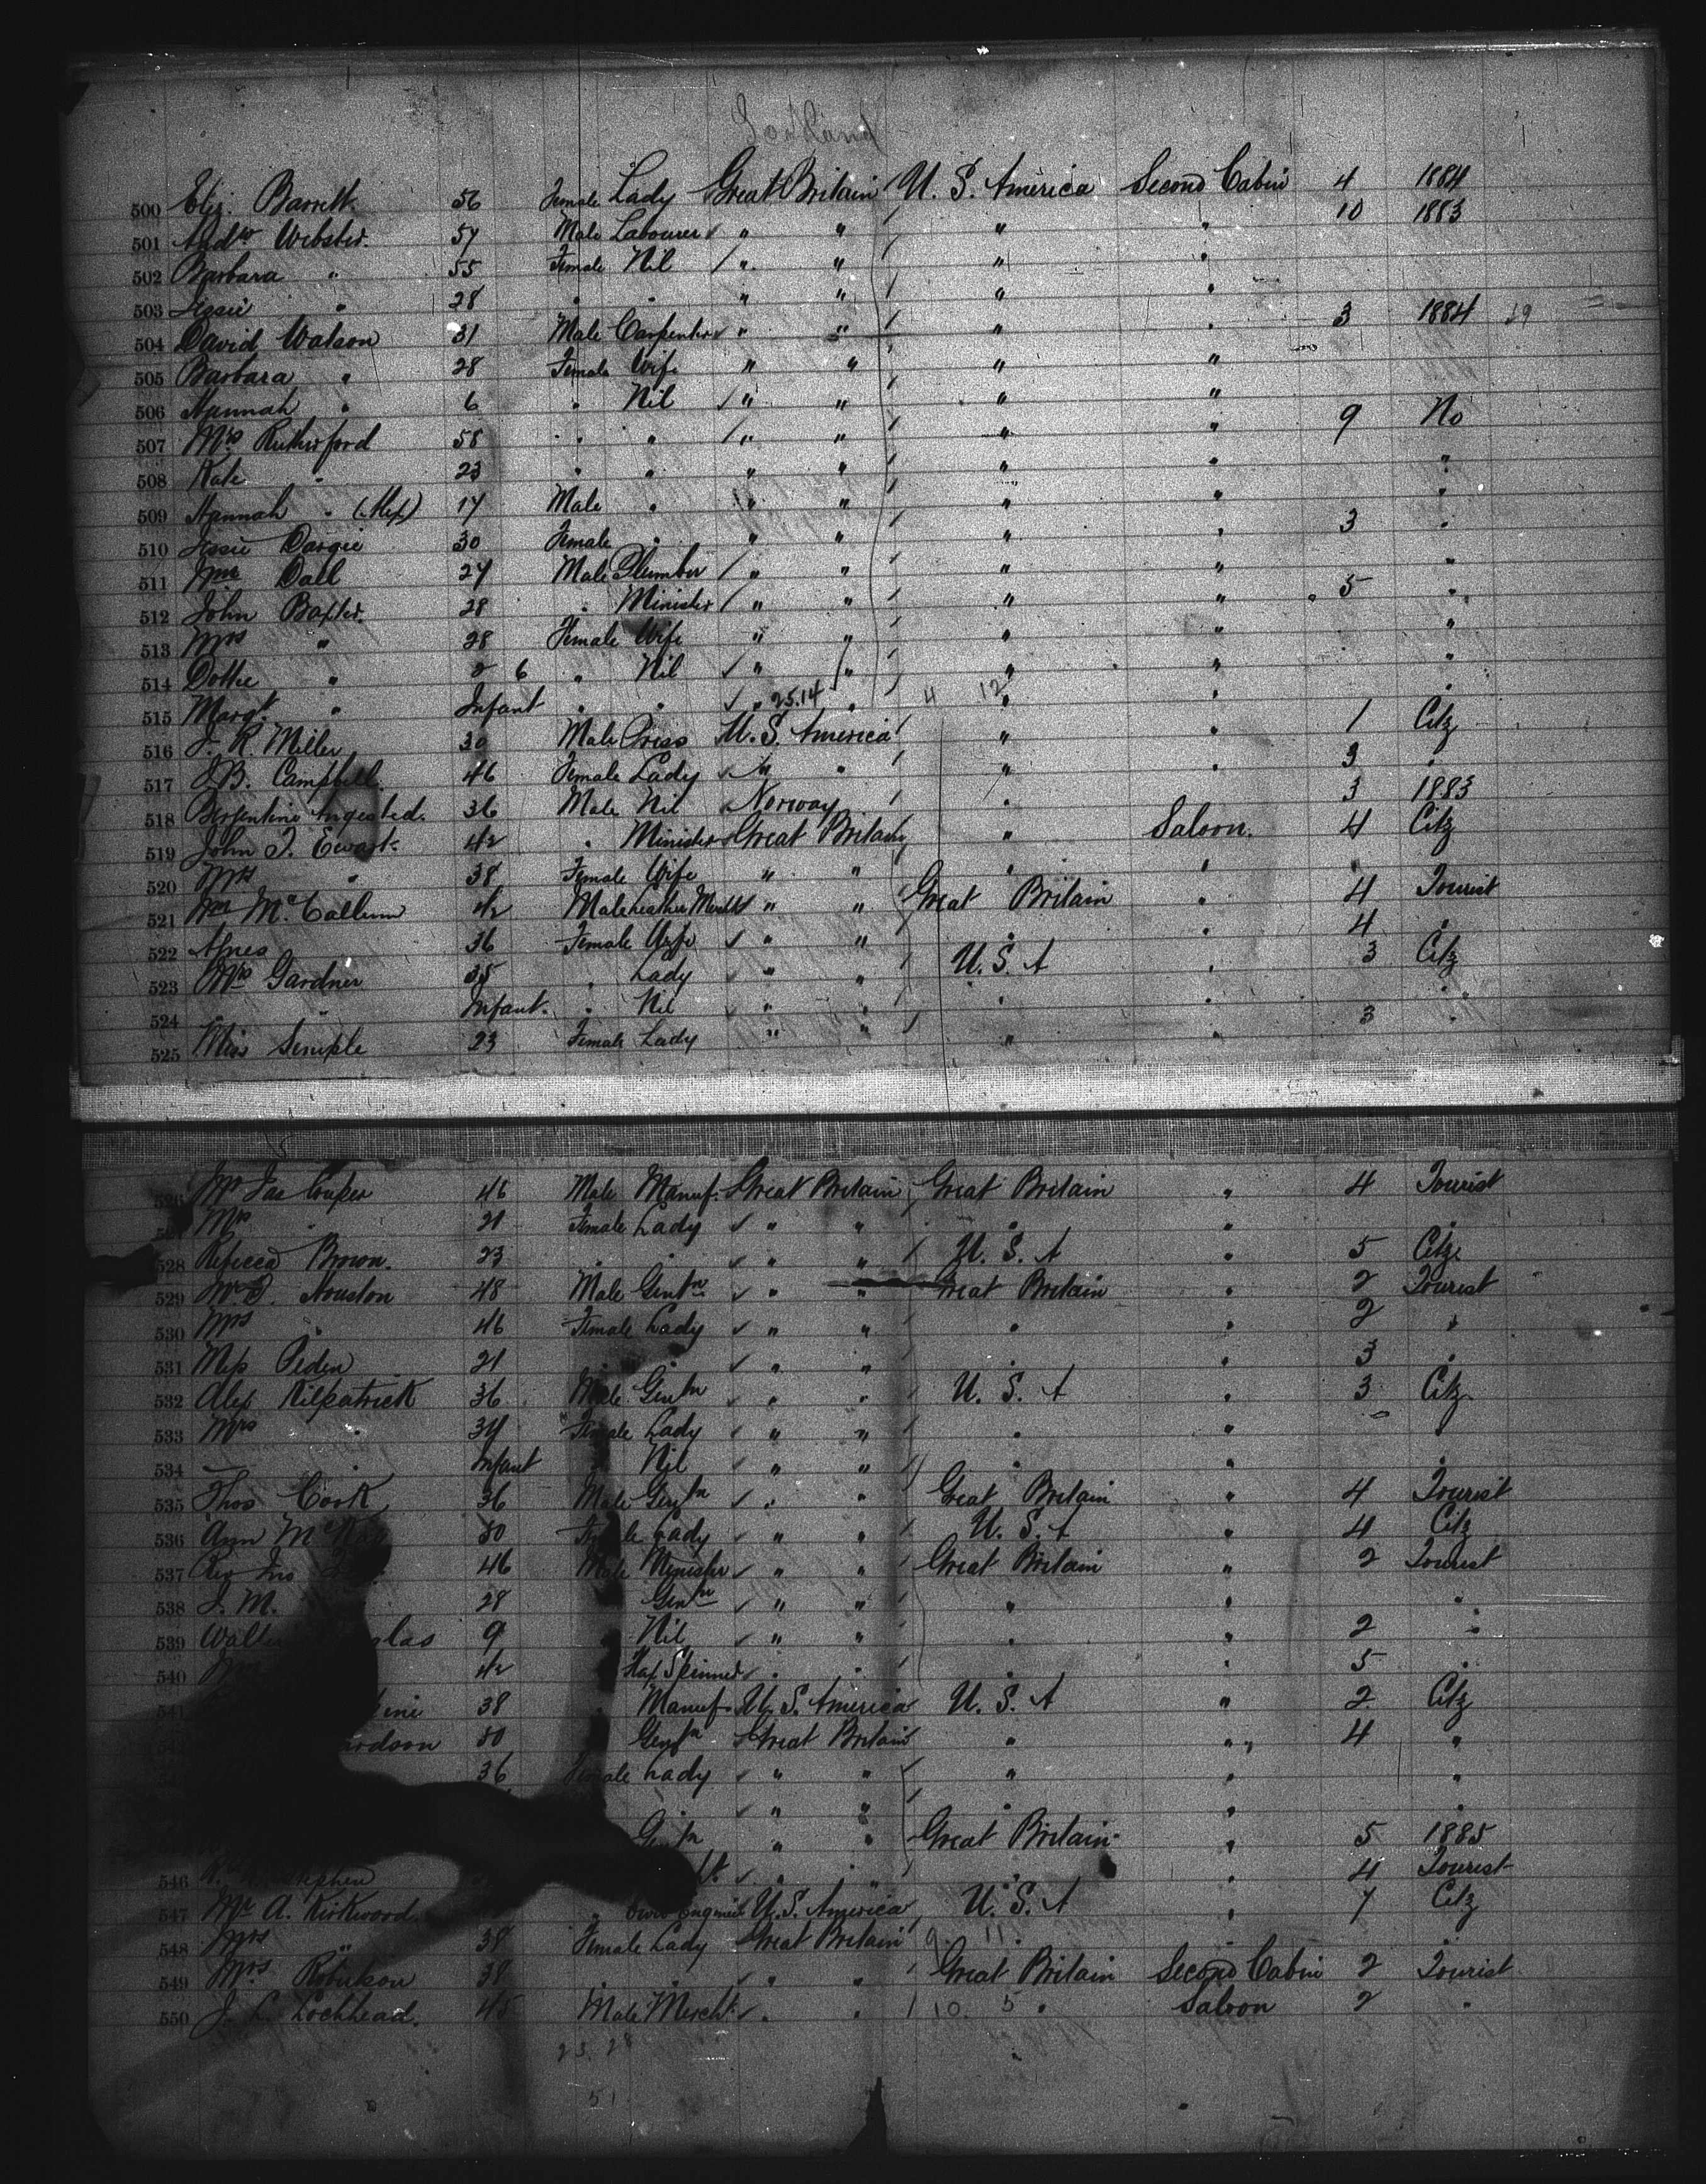 Scotland
500 Eliz. Barrett. 56 Female Lady Great Britain U. S. America Second Cabin 4 1884
501 Andw Webster. 57 Male Labourer " " " " 10 1883
502 Barbara " 55 Female Nil " " " "
503 Jessie " 28 " " " " " "
504 David Watson 31 Male Carpenter " " " " 3 1884 29
505 Barbara " 28 Female Wife " " " "
506 Hannah " 6 " Nil " " " "
507 Mrs Rutherford 58 " " " " " " 9 No
508 Kate " 23 " " " " " " "
509 Hannah " (Alex) 17 Male " " " " " "
510 Jessie Dargie 30 Female " " " " " 3 "
511 Wm Dall 27 Male Plumber " " " " "
512 John Baxter. 28 " Minister " " " " 5 "
513 Mrs " 28 Female Wife " " " " "
514 Dottie " 2 6 " Nil " " " " "
515 Margt. " Infant " " " 25.14 " 4 12 " "
516 J. R. Miller 30 Male Press U. S. America " " 1 Citz
517 J. B. Campbell. 46 Female Lady " " " " 3 "
518 36 Male Nil Norway " 3 1883
519 John T. Ewart. 42 " Minister Great Britain " Saloon. 4 Citz
520 Mrs " 38 Female Wife " " " "
521 Wm McCallum 42 Male Leather Mercht " " Great Britain " 4 Tourist
522 Agnes 36 Female Wife " " " " 4 "
523 Mrs Gardner 35 " Lady " " U. S. A " 3 Citz
524 " Infant. " Nil " " " " "
525 Miss Semple 23 Female Lady " " " " 3 "
526 Mr Jas Couper 46 Male Manuf. Great Britain Great Britain " 4 Tourist
Mrs " 21 Female Lady " " " " "
528 Rebecca Brown. 23 " " " " U. S. A " 5 Citz
529 Houston 48 Male Gentn " " Great Britain " 2 Tourist
530 Mrs " 46 Female Lady " " " " 2 "
531 Miss Peden 21 " " " " " " 3 "
532 Alex Kilpatrick 36 Male Gentn " " U. S. A " 3 Citz
533 Mrs " 34 Female Lady " " " "
534 Infant Nil " " " "
535 Thos Cook 36 Male Gentn " " Great Britain " 4 Tourist
536 Ann 30 Female Lady " " U. S. A " 4 Citz
537 Rev Jno 46 Male Minister " " Great Britain " 2 Tourist
538 J. M. 28 Gentn " " " " "
539 9 Nil " " " " 2 "
540 42 Flax Spinner " " " " 5 "
541 38 Manuf. U. S. America U. S. A " 2 Citz
ardson 50 Gentn Great Britain " " 4 "
36 Female Lady " " " " "
" " " " "
Gentn " " Great Britain " 5 1885
546 " " " " 4 Tourist
547 Mr A. Kirkwood. " Civil Engineer U. S. America U. S. A " 7 Citz
548 Mrs " 38 Female Lady Great Britain 9. 11.
549 Mrs Robertson 38 " " " " Great Britain Second Cabin 2 Tourist
550 J. L. Lochhead. 45 Male Mercht " " 10 5 " Saloon 2 "
23. 28
51